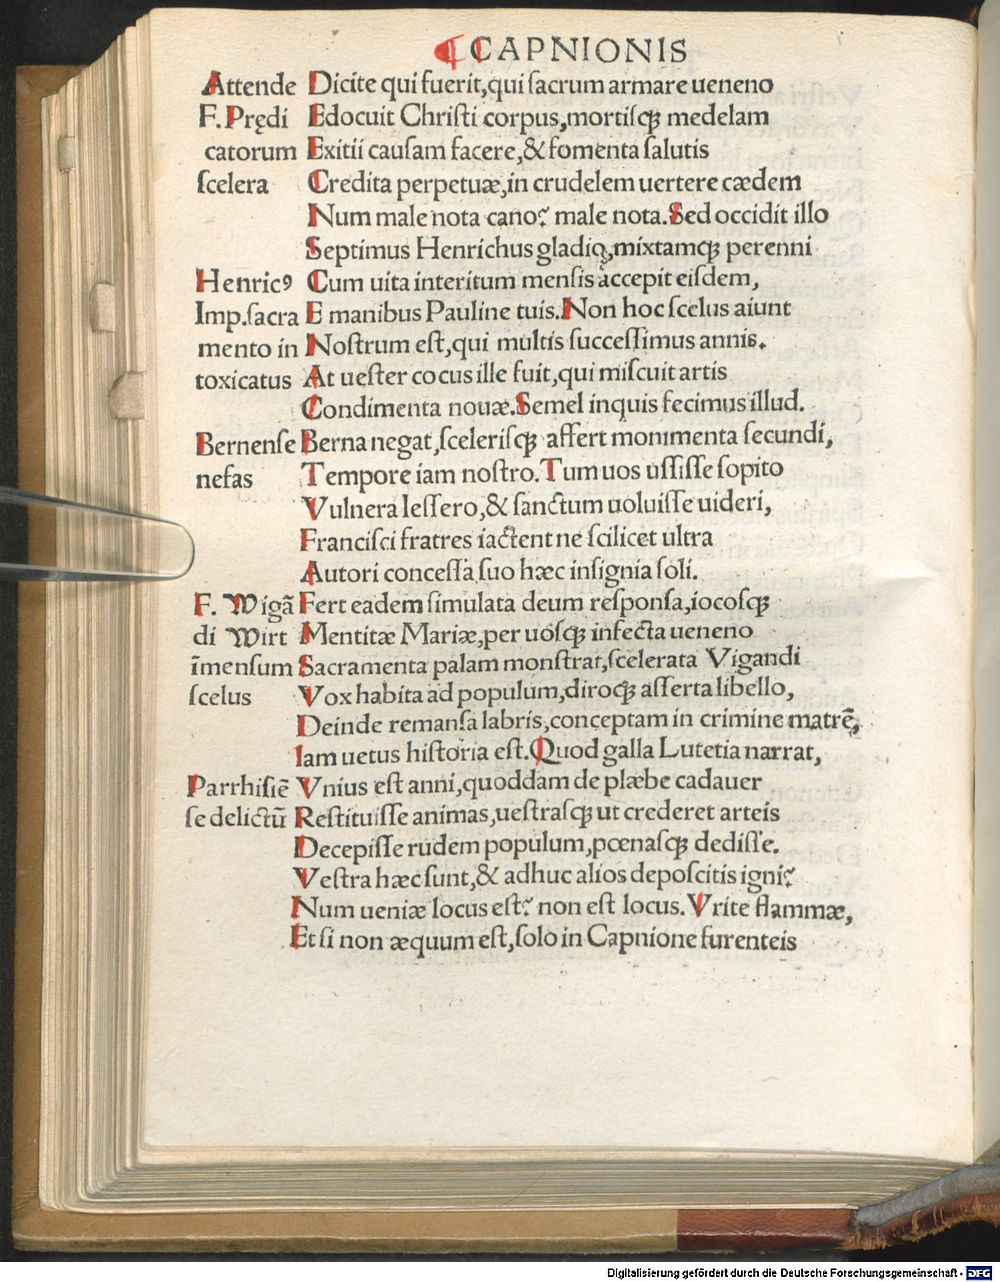 ¶ CAPNIONIS
Attende Dicite qui fuerit,qui ſacrum armare ueneno
F. Prędi Edocuit Chriſti corpus,mortiſcꝫ medelam
catorum Exitii cauſam facere,& fomenta ſalutis
ſcelera Credita perpetuæ,in crudelem uertere cædem
Num male nota cano? male nota.Sed occidit illo
Septimus Henrichus gladio,mixtamcꝫ perenni
Henricꝰ Cum uita interitum menſis accepit eiſdem,
Imp.ſacra E manibus Pauline tuis.Non hoc ſcelus aiunt
mento in Noſtrum eſt,qui multis ſucceſſimus annis.
toxicatus At ueſter cocus ille fuit,qui miſcuit artis
Condimenta nouæ.Semel inquis fecimus illud.
Bernenſe Berna negat,ſceleriſcꝫ affert monimenta ſecundi,
nefas Tempore iam noſtro.Tum uos uſſiſſe ſopito
Vulnera leſſero,& ſanctum uoluiſſe uideri,
Franciſci fratres iactent ne ſcilicet ultra
Autori conceſſa ſuo hæc inſignia ſoli.
F. Wigã Fert eadem ſimulata deum reſponſa,iocoſcꝫ
di Wirt Mentitæ Mariæ,per uoſcꝫ infecta ueneno
īmenſum Sacramenta palam monſtrat,ſcelerata Vigandi
ſcelus Vox habita ad populum,dirocꝫ aſſerta libello,
Deinde remanſa labris,conceptam in crimine matrē,
Iam uetus hiſtoria eſt.Quod galla Lutetia narrat,
Parrhiſiē Vnius eſt anni,quoddam de plæbe cadauer
ſe delictū Reſtituiſſe animas,ueſtraſcꝫ ut crederet arteis
Decepiſſe rudem populum,pœnaſcꝫ dediſſe.
Veſtra hæc ſunt,& adhuc alios depoſcitis igni?
Num ueniæ locus eſt? non eſt locus.Vrite flammæ,
Et ſi non æquum eſt,ſolo in Capnione furenteis
Digitalisierung gefördert durch die Deutsche Forschungsgemeinschaft - DFG